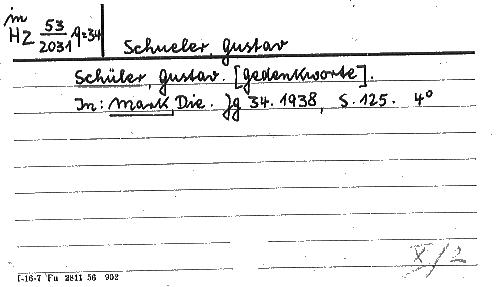 in
HZ 53/2031, 9=34
Schueler, Gustav
Schüler, Gustav. [Gedenkworte].
In: Mark, Die. Jg 34. 1938, S. 125. 4°
X/2
I-16-7 Fu 2811 56 902